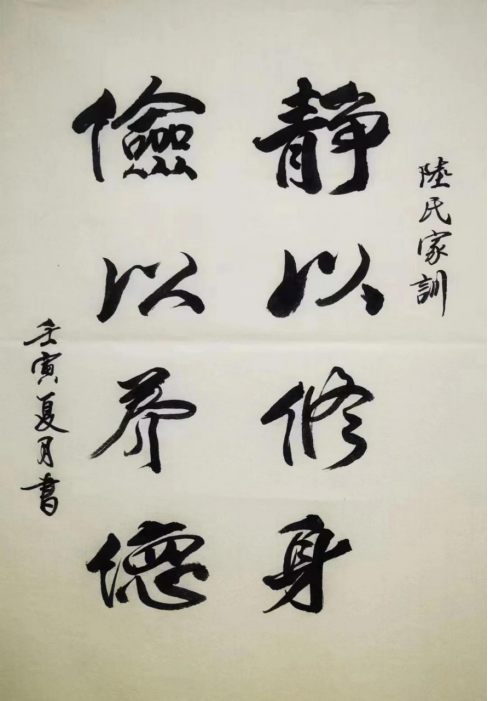 陸氏家訓
靜以修身
儉以养德
壬寅夏月書